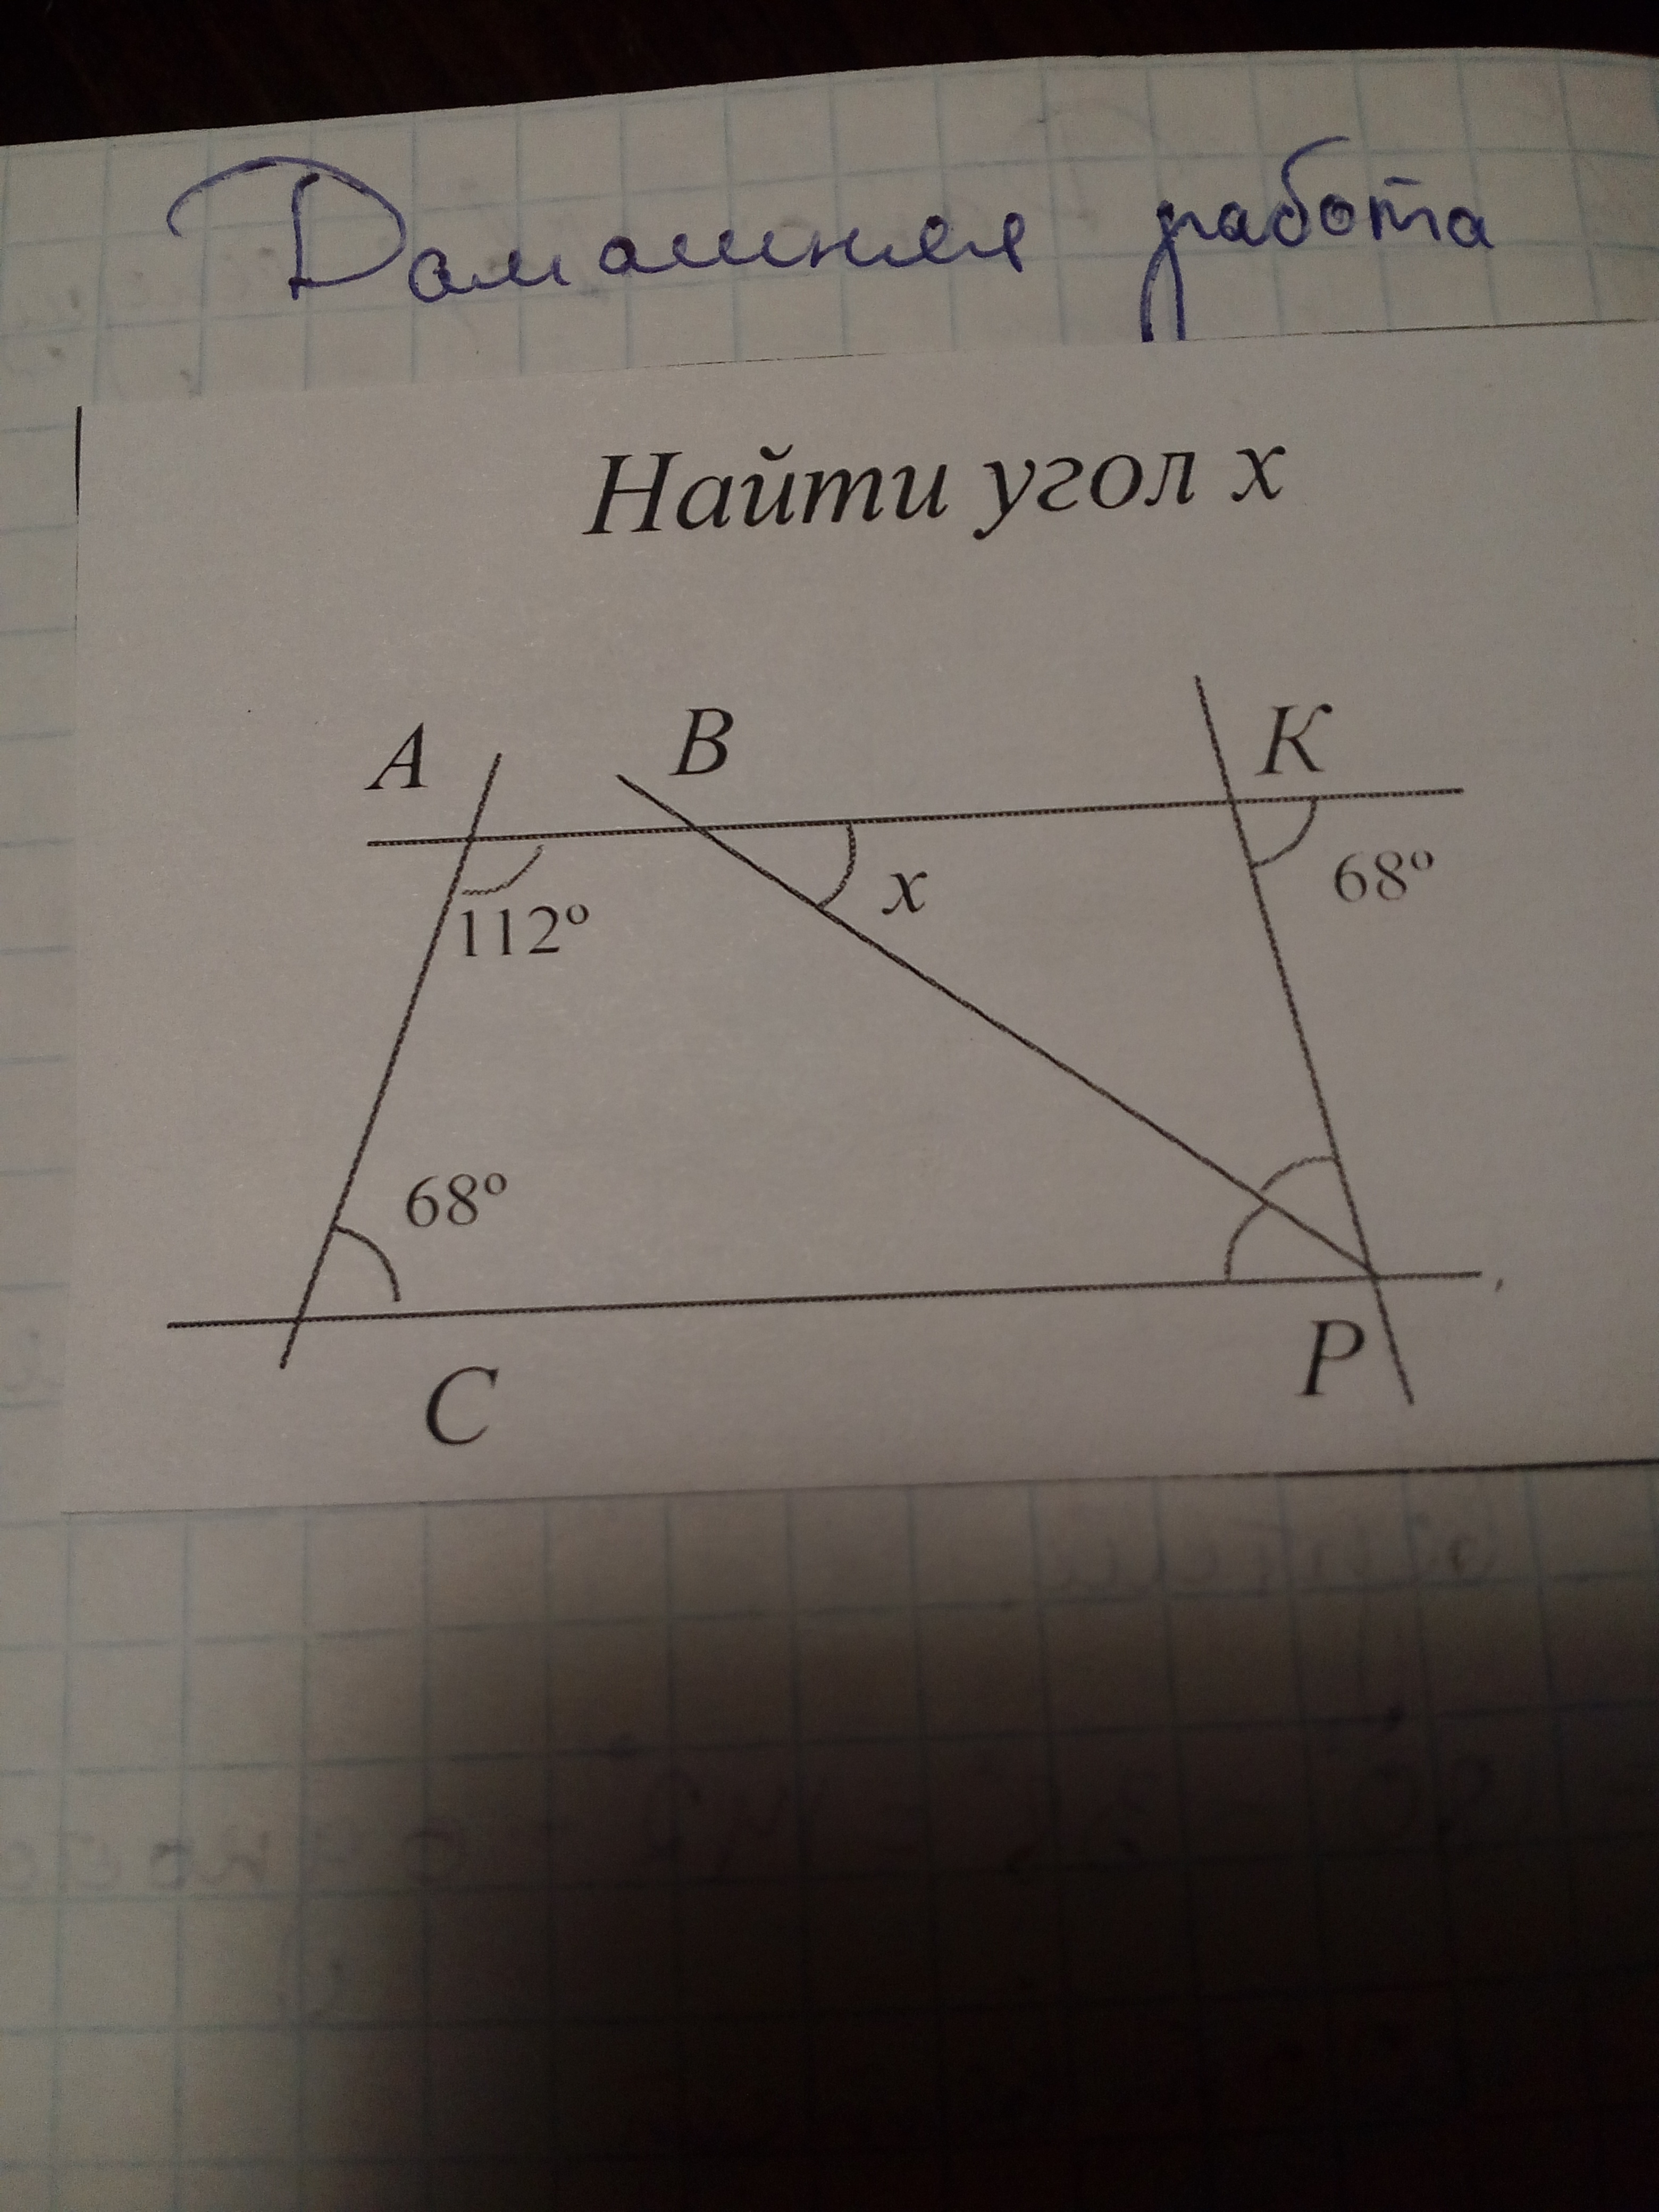 Домашняя работа
Найти угол x
A B K
112º x 68º
68º
C P